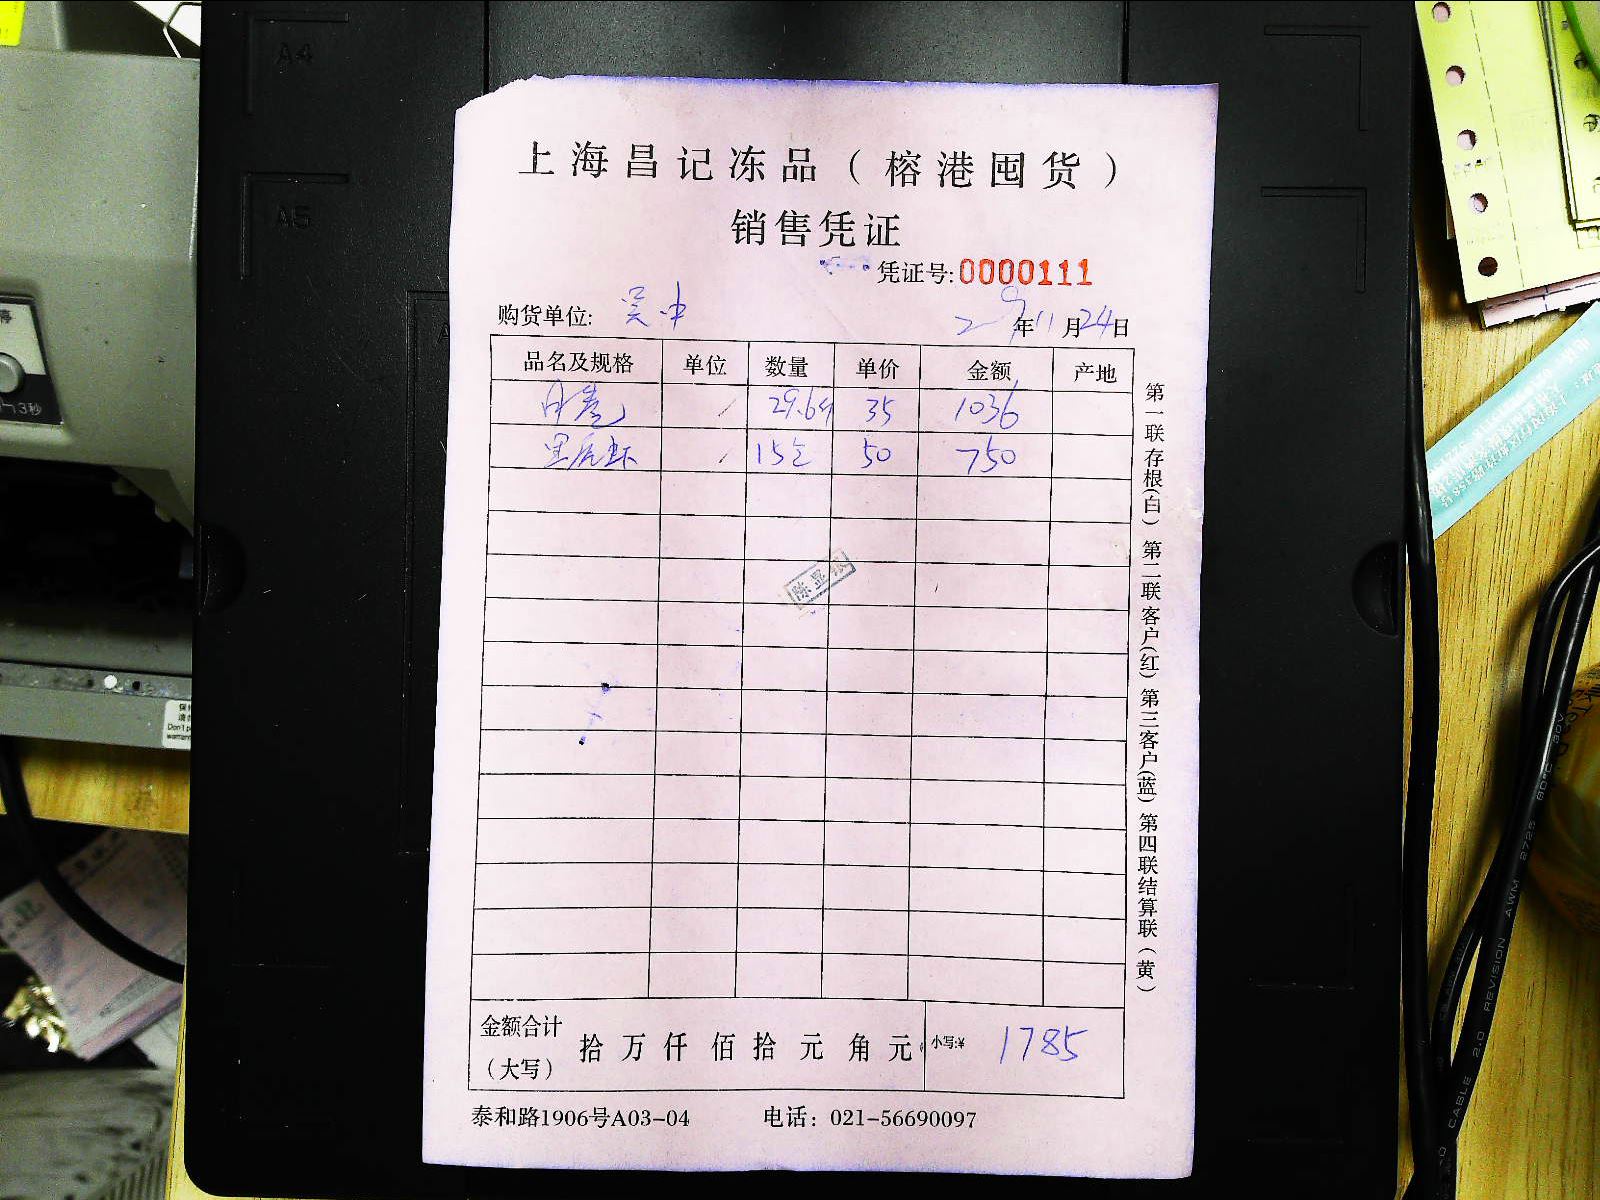 上海昌记冻品（榕港囤货）
销售凭证
凭证号:0000111
购货单位: 吴中
年11月24日
品名及规格 单位 数量 单价 金额 产地
29.6 35 1036
黑虎虾 15 50 750
陈显
金额合计（大写） 拾 万 仟 佰 拾 元 角 元 小写:¥ 1785
泰和路1906号A03-04 电话：021-56690097
第一联存根(白) 第二联客户(红) 第三客户(蓝) 第四联结算联(黄)
A4
A5